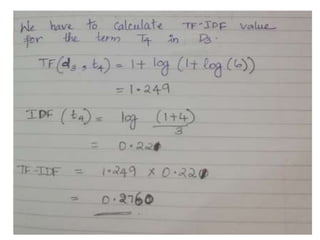 We have to calculate TF-IDF value
for the term T4 in D3.
TF(d3, t4) = 1+ log (1+ log (6))
= 1.249
IDF (t4) = log (1+4)
3
= 0.221
TF-IDF = 1.249 × 0.220
= 0.2760